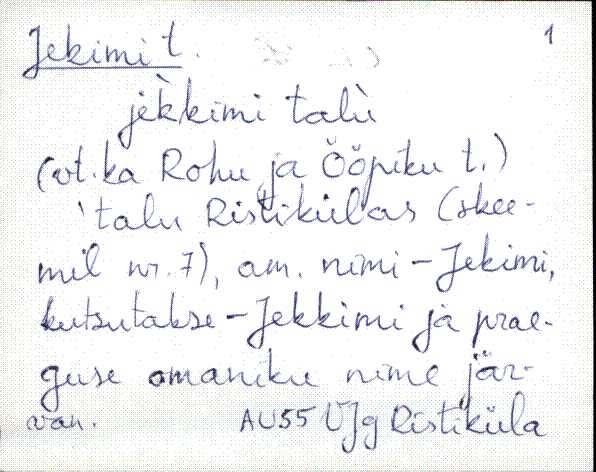 Jekimi t. 1
jèkkimi talù
(vt. ka Rohu ja Ööpiku t.)
'talu Ristikülas (skee-
mil nr. 7), am. nimi - Jekimi,
kutsutakse - Jekkimi ja prae-
guse omaniku nime jär-
AU55 VJg Ristiküla